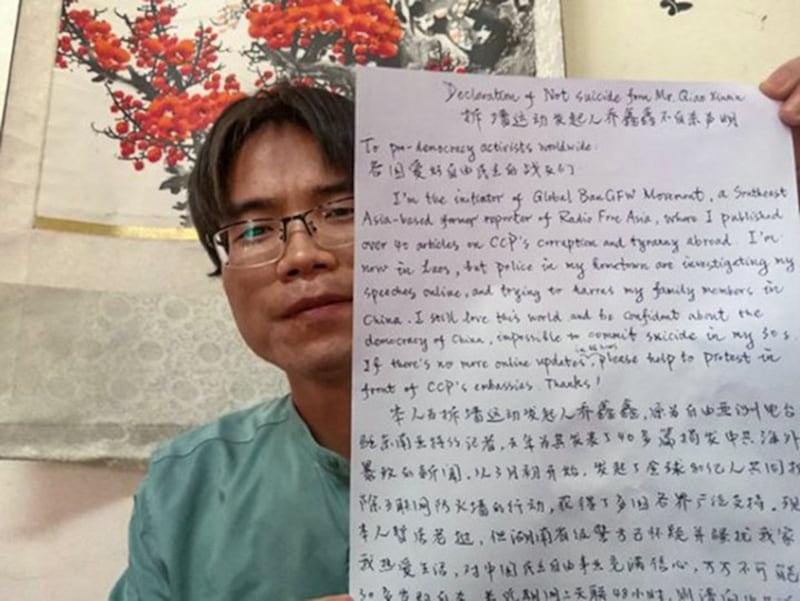 Declaration of Not suicide from Mr. Qiao Xinxin
拆墙运动发起人乔鑫鑫不自杀声明
To pro-democracy activists worldwide:
各国爱好自由民主的战友们:
I'm the initiator of Global BanGFW Movement, a Southeast
Asia-based former reporter of Radio Free Asia, where I published
over 40 articles on CCP's corruption and tyranny abroad. I'm
now in Laos, but police in my hometown are investigating my
speeches online, and trying to harass my family members in
China. I still love this world and be confident about the
democracy of China, impossible to commit suicide in my 30s.
If there's no more online updates in 48 hours, please help to protest in
front of CCP's embassies. Thanks!
本人为拆墙运动发起人乔鑫鑫,原为自由亚洲电台
驻东南亚特约记者,去年为其发表了40多篇揭发中共海外
暴政的新闻,从3月初开始,发起了全球 亿人共同拆
除互联网防火墙的行动,获得了多国各界广泛支持。现
本人暂居老挝,但湖南省级警方已怀疑并骚扰我家
我热爱生活,对中国民主自由事业充满信心,万万不可能
30多岁就自杀。若我期间上失联48小时,则请